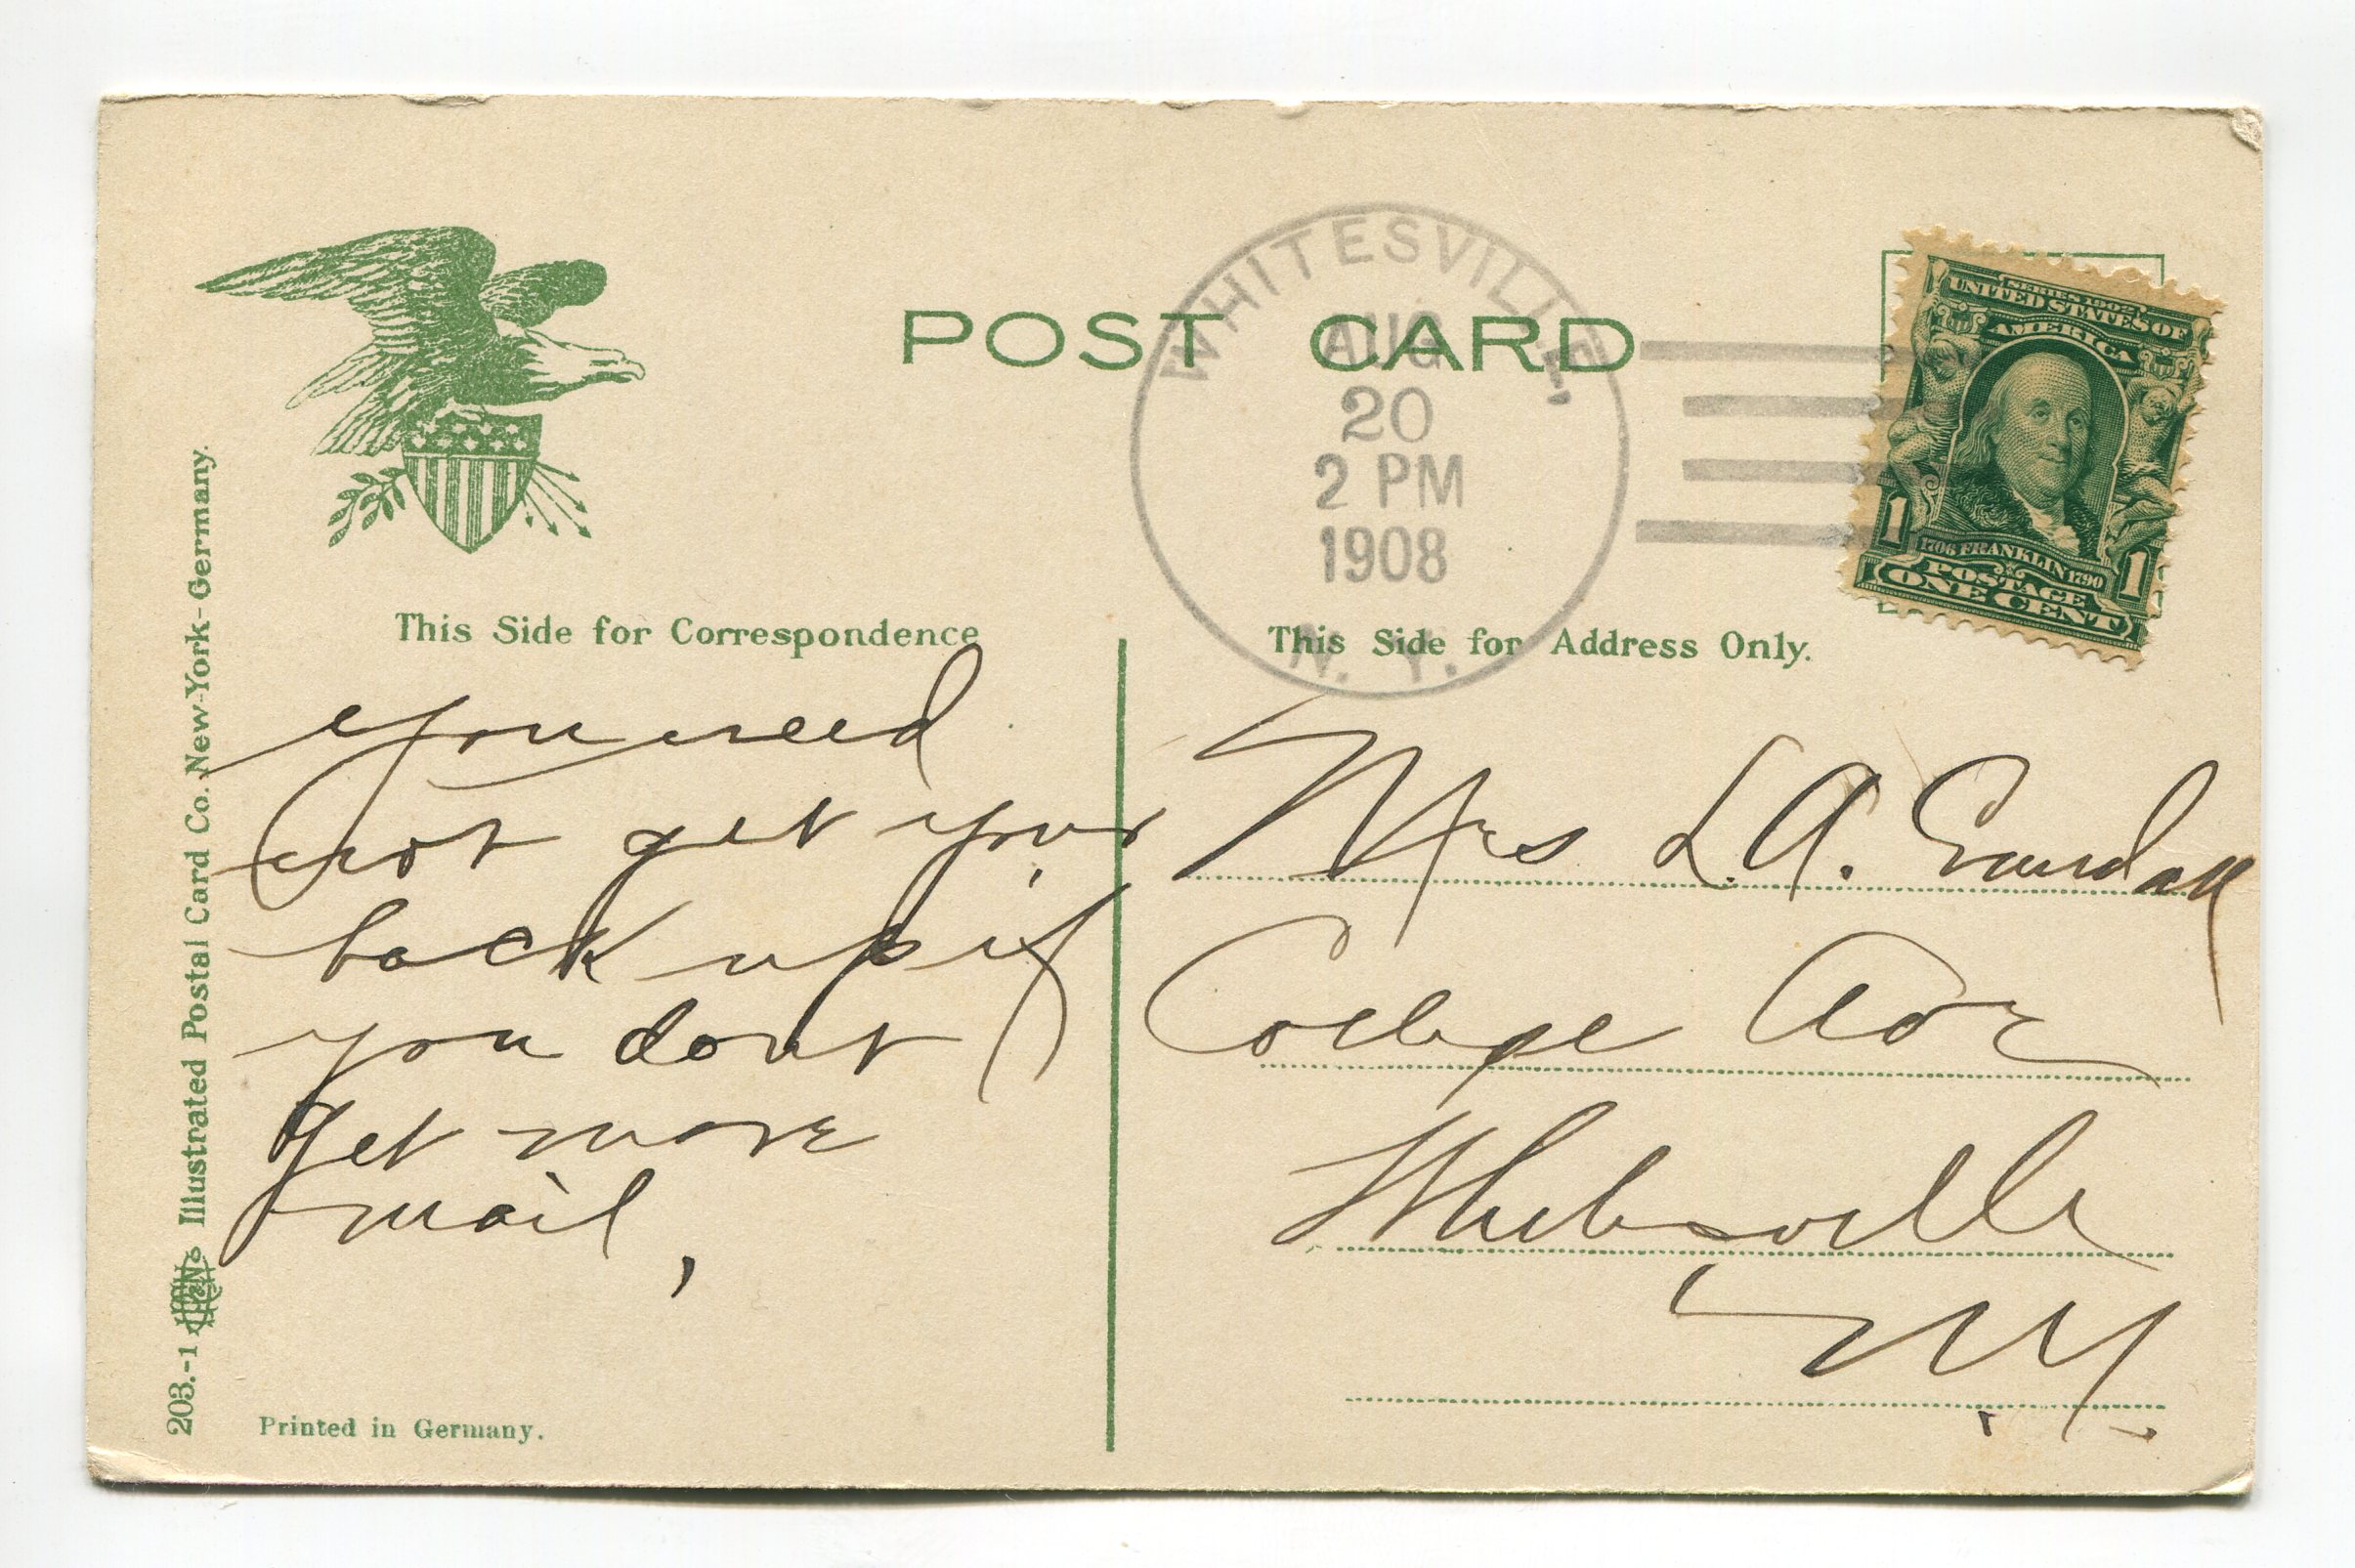 POST CARD
WHITESVILLE,
AUG
20
2 PM
1908
N. Y.
SERIES 1902
UNITED STATES OF
AMERICA
1706 FRANKLIN 1790
1 POSTAGE 1
ONE CENT
This Side for Correspondence
you need
not get your
back up if
you dont
get more
mail,
This Side for Address Only.
Mrs L.A. Crandall
College Ave
Whitesville
N.Y.
203.-1 Illustrated Postal Card Co. New-York-Germany.
Printed in Germany.